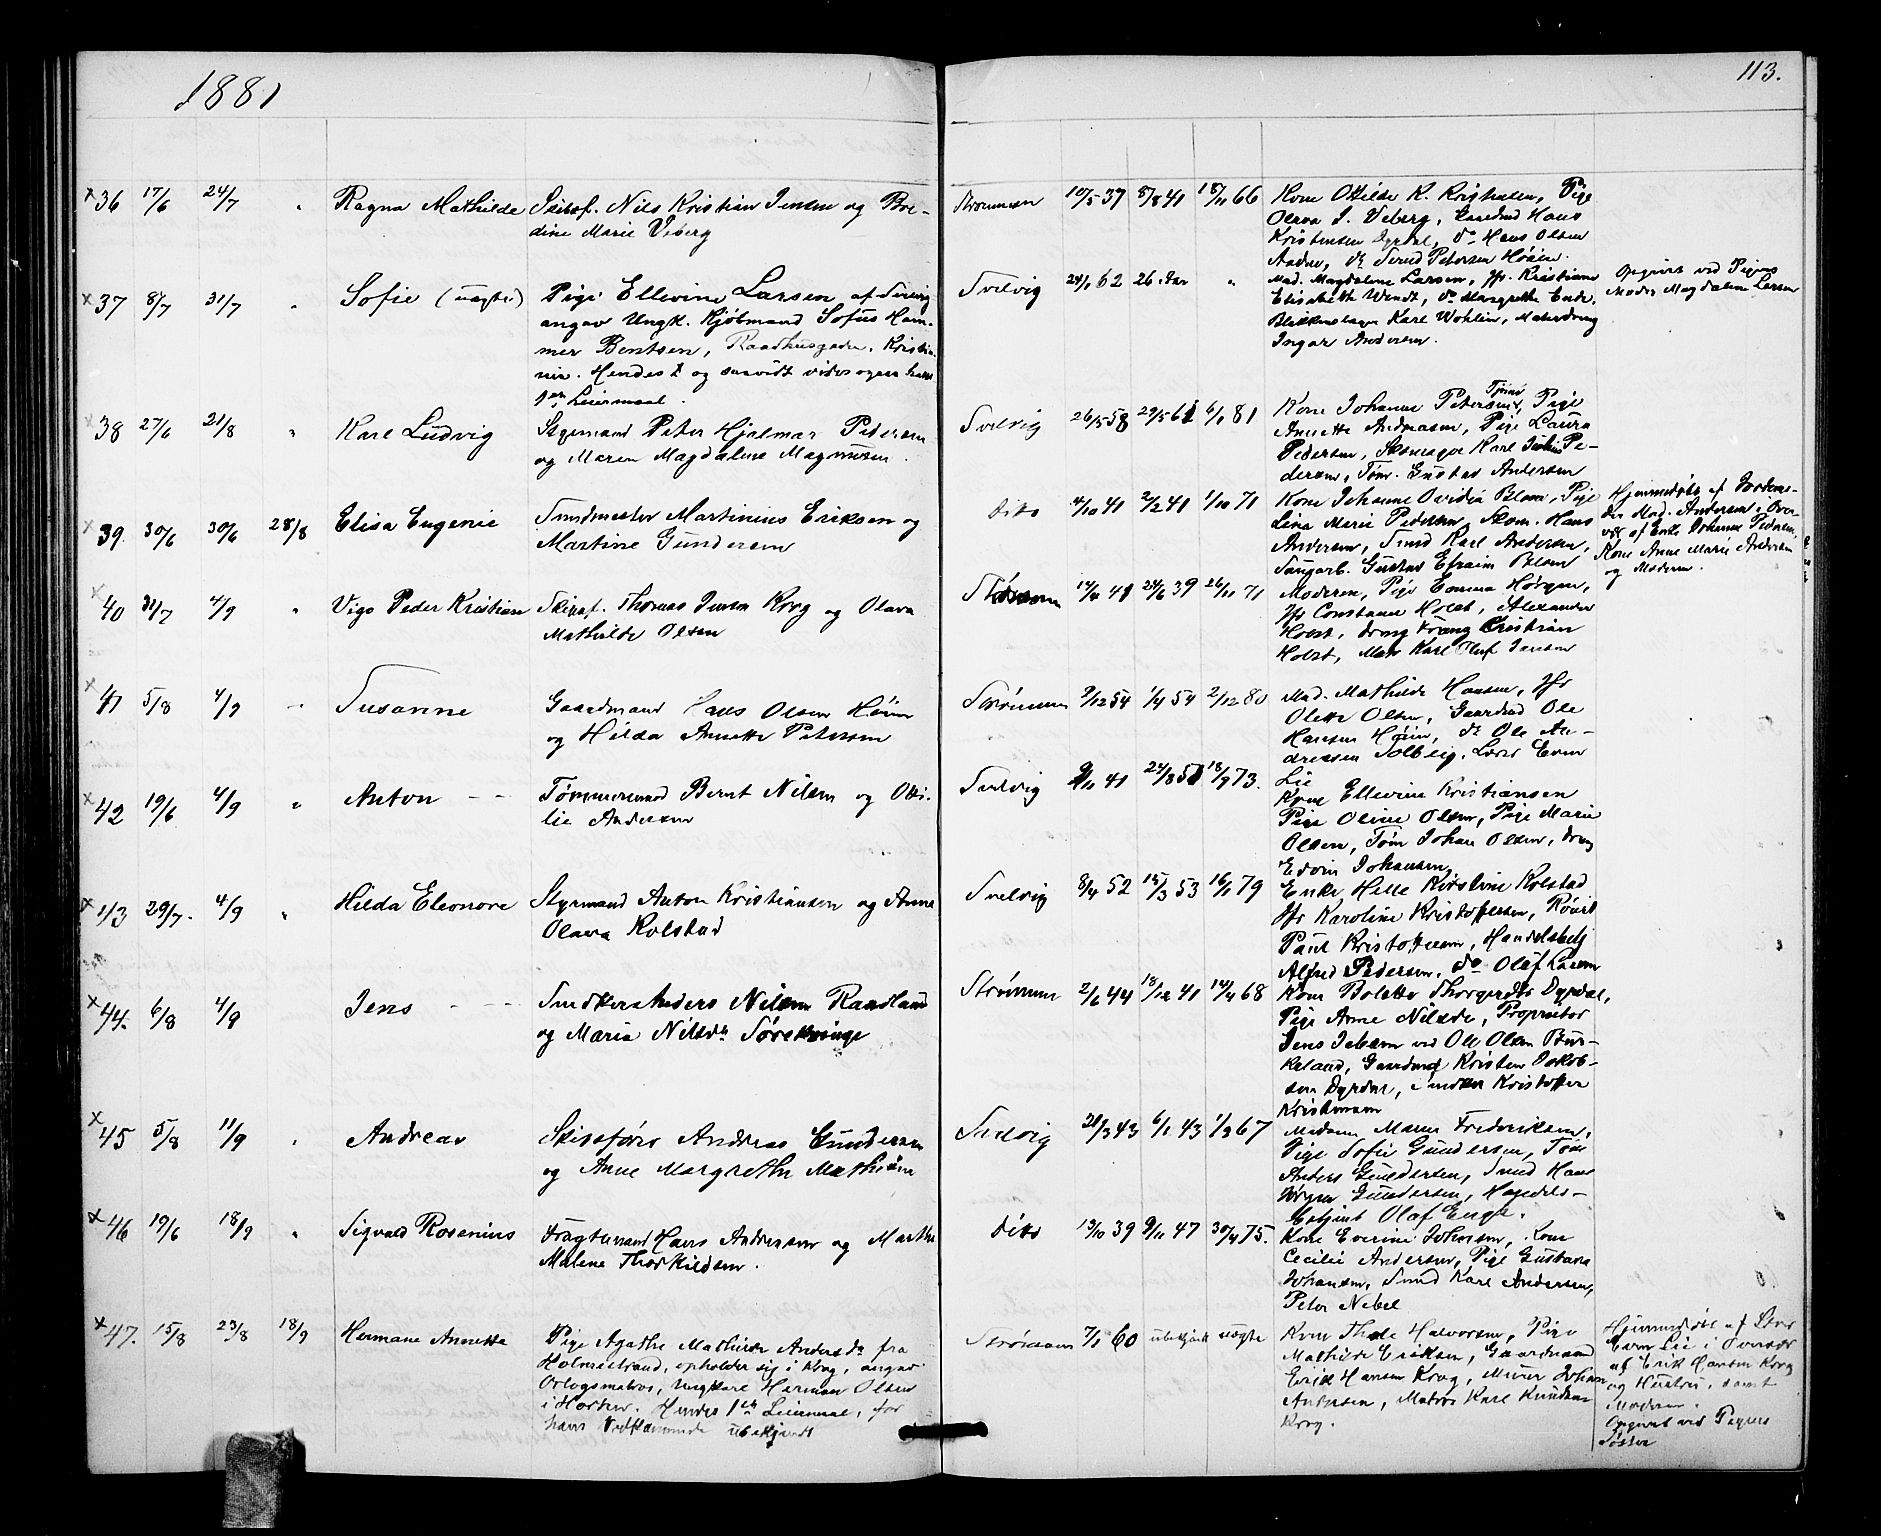 1881
113.
36 17/6 24/7 " Ragna Mathilde Skibsf. Nils Kristian Jensen og Ber-
dine Marie Veberg
Strømmen 10/5 37 8/8 41 18/11 66 Kone Otilde K. Kristiansen, Pige
Olava J. Veberg, Gaardmd Hans
Kristensen Dyrdal, do Hans Olsen
do Svend Petersen Høien.
37 8/7 31/7 " Sofie (uægte) Pige Ellevine Larsen af Svelvig
angav Ungk. Kjøbmand Sofus Ham-
mer Bentsen, Raadhusgaden, Kristia-
nia. Hendes og saavidt vides ogsaa hans
1ste Leiermaal.
Svelvig 24/1 62 26 Aar " Mad. Magdalene Larsen, Jfr. Kristiane
Elisabeth Wendt, do Margrethe Ende,
Blikkenslager Karl Wohlin, Malerdreng
Ingar Andersen.
Opgivet ved Pigens
Moder Magdalene Larsen
38 27/6 21/8 " Karl Ludvig Styrmand Peter Hjalmar Pedersen
og Maren Magdalene Magnusen.
Svelvig 26/5 58 29/5 61 6/1 81 Kone Johanne Petersen, Pige
Annette Andreasen, Pige Laura
Pedersen, Skomager Karl Pe-
dersen, Tøm. Gustav Andersen
39. 30/6 30/6 28/8 Elisa Eugenie Sundmester Martinius Eriksen og
Martine Gundersen
dito 4/10 41 2/2 41 1/10 71 Kone Johanne Ovidia Blom, Pige
Lina Marie Pedersen, Skom. Hans
Andersen, Smed Karl Andersen,
Saugarb. Gustav Efraim Blom
Hjemmedøbt af Jordemo-
der Mad. Andersen i Over-
vær af Enke Johanne Pedersen,
Kone Anne Marie Andersen
og Moderen.
40 31/7 4/9 " Vigo Peder Kristian Skipsf. Thomas Jensen Krog og Olava
Mathilde Olsen
Strømmen 14/4 41 24/6 39 26/11 71 Moderen, Pige Emma Hørgen,
Jfr Constance Holst, Alexander
Holst, dreng Franz Christian
Holst, Mat. Karl Oluf Jensen
41 5/8 4/9 - Susanne Gaardmand Hans Olsen Høien
og Hilda Annette Petersen
Strømmen 9/12 54 1/4 54 2/12 80 Mad. Mathilde Hansen, Jfr
Olette Olsen, Gaardmd Ole
Hansen Høien, do Ole An-
dreasen Solberg, Lærer Even
Lie
42 19/6 4/9 " Anton - - Tømmermand Bernt Nilsen og Otti-
lie Andersen
Svelvig 9/11 41 24/8 51 18/9 73. Kone Ellevine Kristiansen
Pige Oline Olsen, Pige Marie
Olsen, Tøm Johan Olsen, dreng
Edvin Johansen
43 29/7. 4/9 " Hilda Eleonore Styrmand Anton Kristiansen og Anne
Olava Rolstad
Svelvig 8/4 52 15/3 53 16/1 79 Enke Helle Kirstine Rolstad
Jfr Karoline Kristoffersen,
Paul Kristoffersen, Handelsbetj
Alfred Pedersen, do Olaf Larsen
44. 6/8 4/9 Jens - - - Snedker Anders Nilsen Raadland
og Maria Nilsdr
Strømmen 2/6 44 18/12 41 14/4 68 Kone Bolette Thorgersdr Dyrdal,
Pige Anne Nilsdr, Proprietær
Jens Jebsen ved Ole Olsen Bur-
keland, Gaardmd Kristen Jakob-
sen Dyrdal, Snedker Kristoffer
Kristensen
45 5/8 11/9 . Andreas Skibsfører Andreas Gundersen
og Anne Margrethe Mathisen
Svelvig 21/3 43 6/1 43 1/3 67 Madam Maren Frederiksen,
Pige Sofie Gundersen, Tøm
Anders Gundersen, Smed Hans
Jørgen Gundersen, Handels-
betjent Olaf Enge.
46 19/6 18/9 " Sigvald Rosenius Fragtemand Hans Andersen og Marthe
Malene Thorkildsen.
dito 13/10 39 9/11 47 30/4 75. Kone Everine Johnsen, Kone
Cecilie Andersen, Pige Gustava
Johansen, Smed Karl Andersen,
Peter Nebel
47. 15/8 23/8 18/9 Hermane Annette Pige Agathe Mathilde Andersdr fra
Holmestrand, opholder sig i Krog, angav
Orlogsmatros, Ungkarl Herman Olsen
i Horten. Hendes 1ste Leiermaal, for
hans Vedkommende ubekjendt
Strømmen 7/1 60 ubekjendt uægte Kone Thale Halvorsen, Pige
Mathilde Eriksen, Gaardmand
Erik Hansen Krog, Murer Johan
Antonsen, Matros Karl Knudsen
Krog.
Hjemmedøbt af Lærer
Even Lie i Overvær
af Erik Hansen Krog
og Hustru, samt
Moderen.
Opgivet ved Pigens
Søster